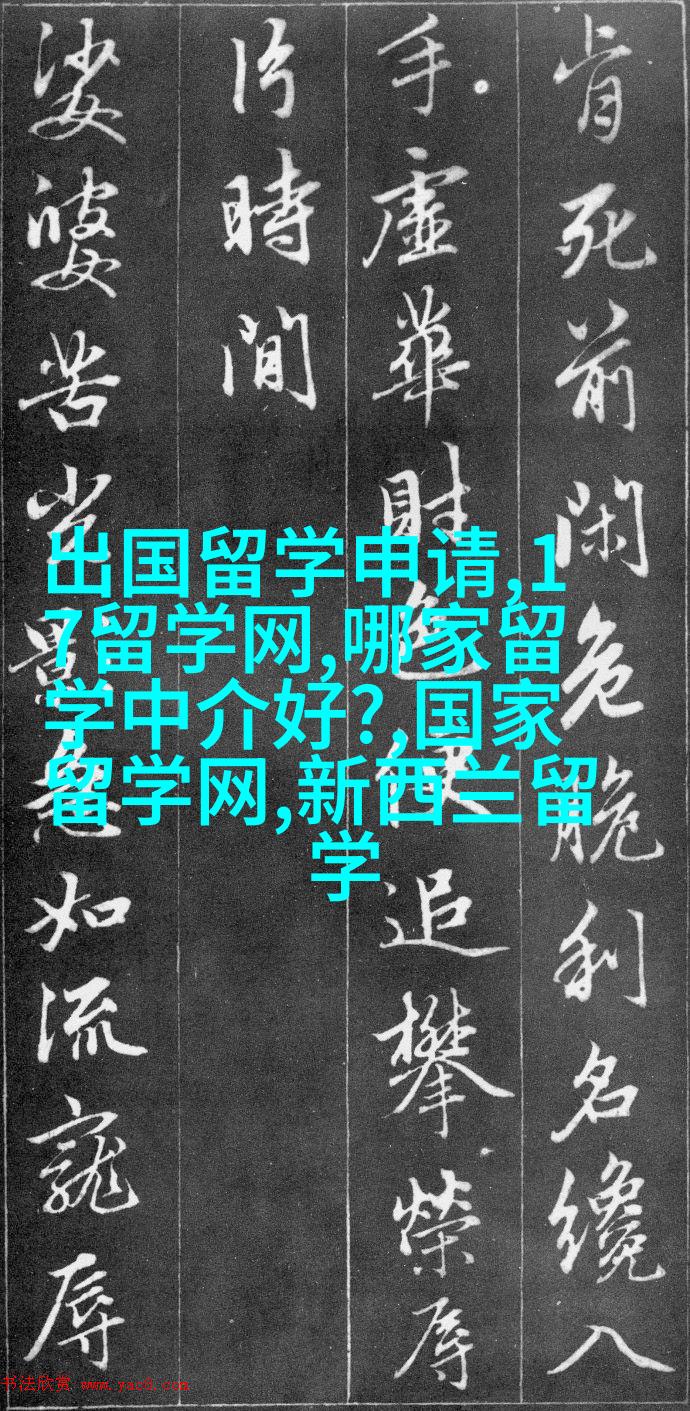 肯死前闲危脆利名才入
手虚華財色便追攀榮辱
片時間
娑婆苦光景急如流寵辱
出国留学申请,1
7留学网,哪家留
学中介好?,国家
留学网,新西兰留
学
书法欣赏 www.yac8.com